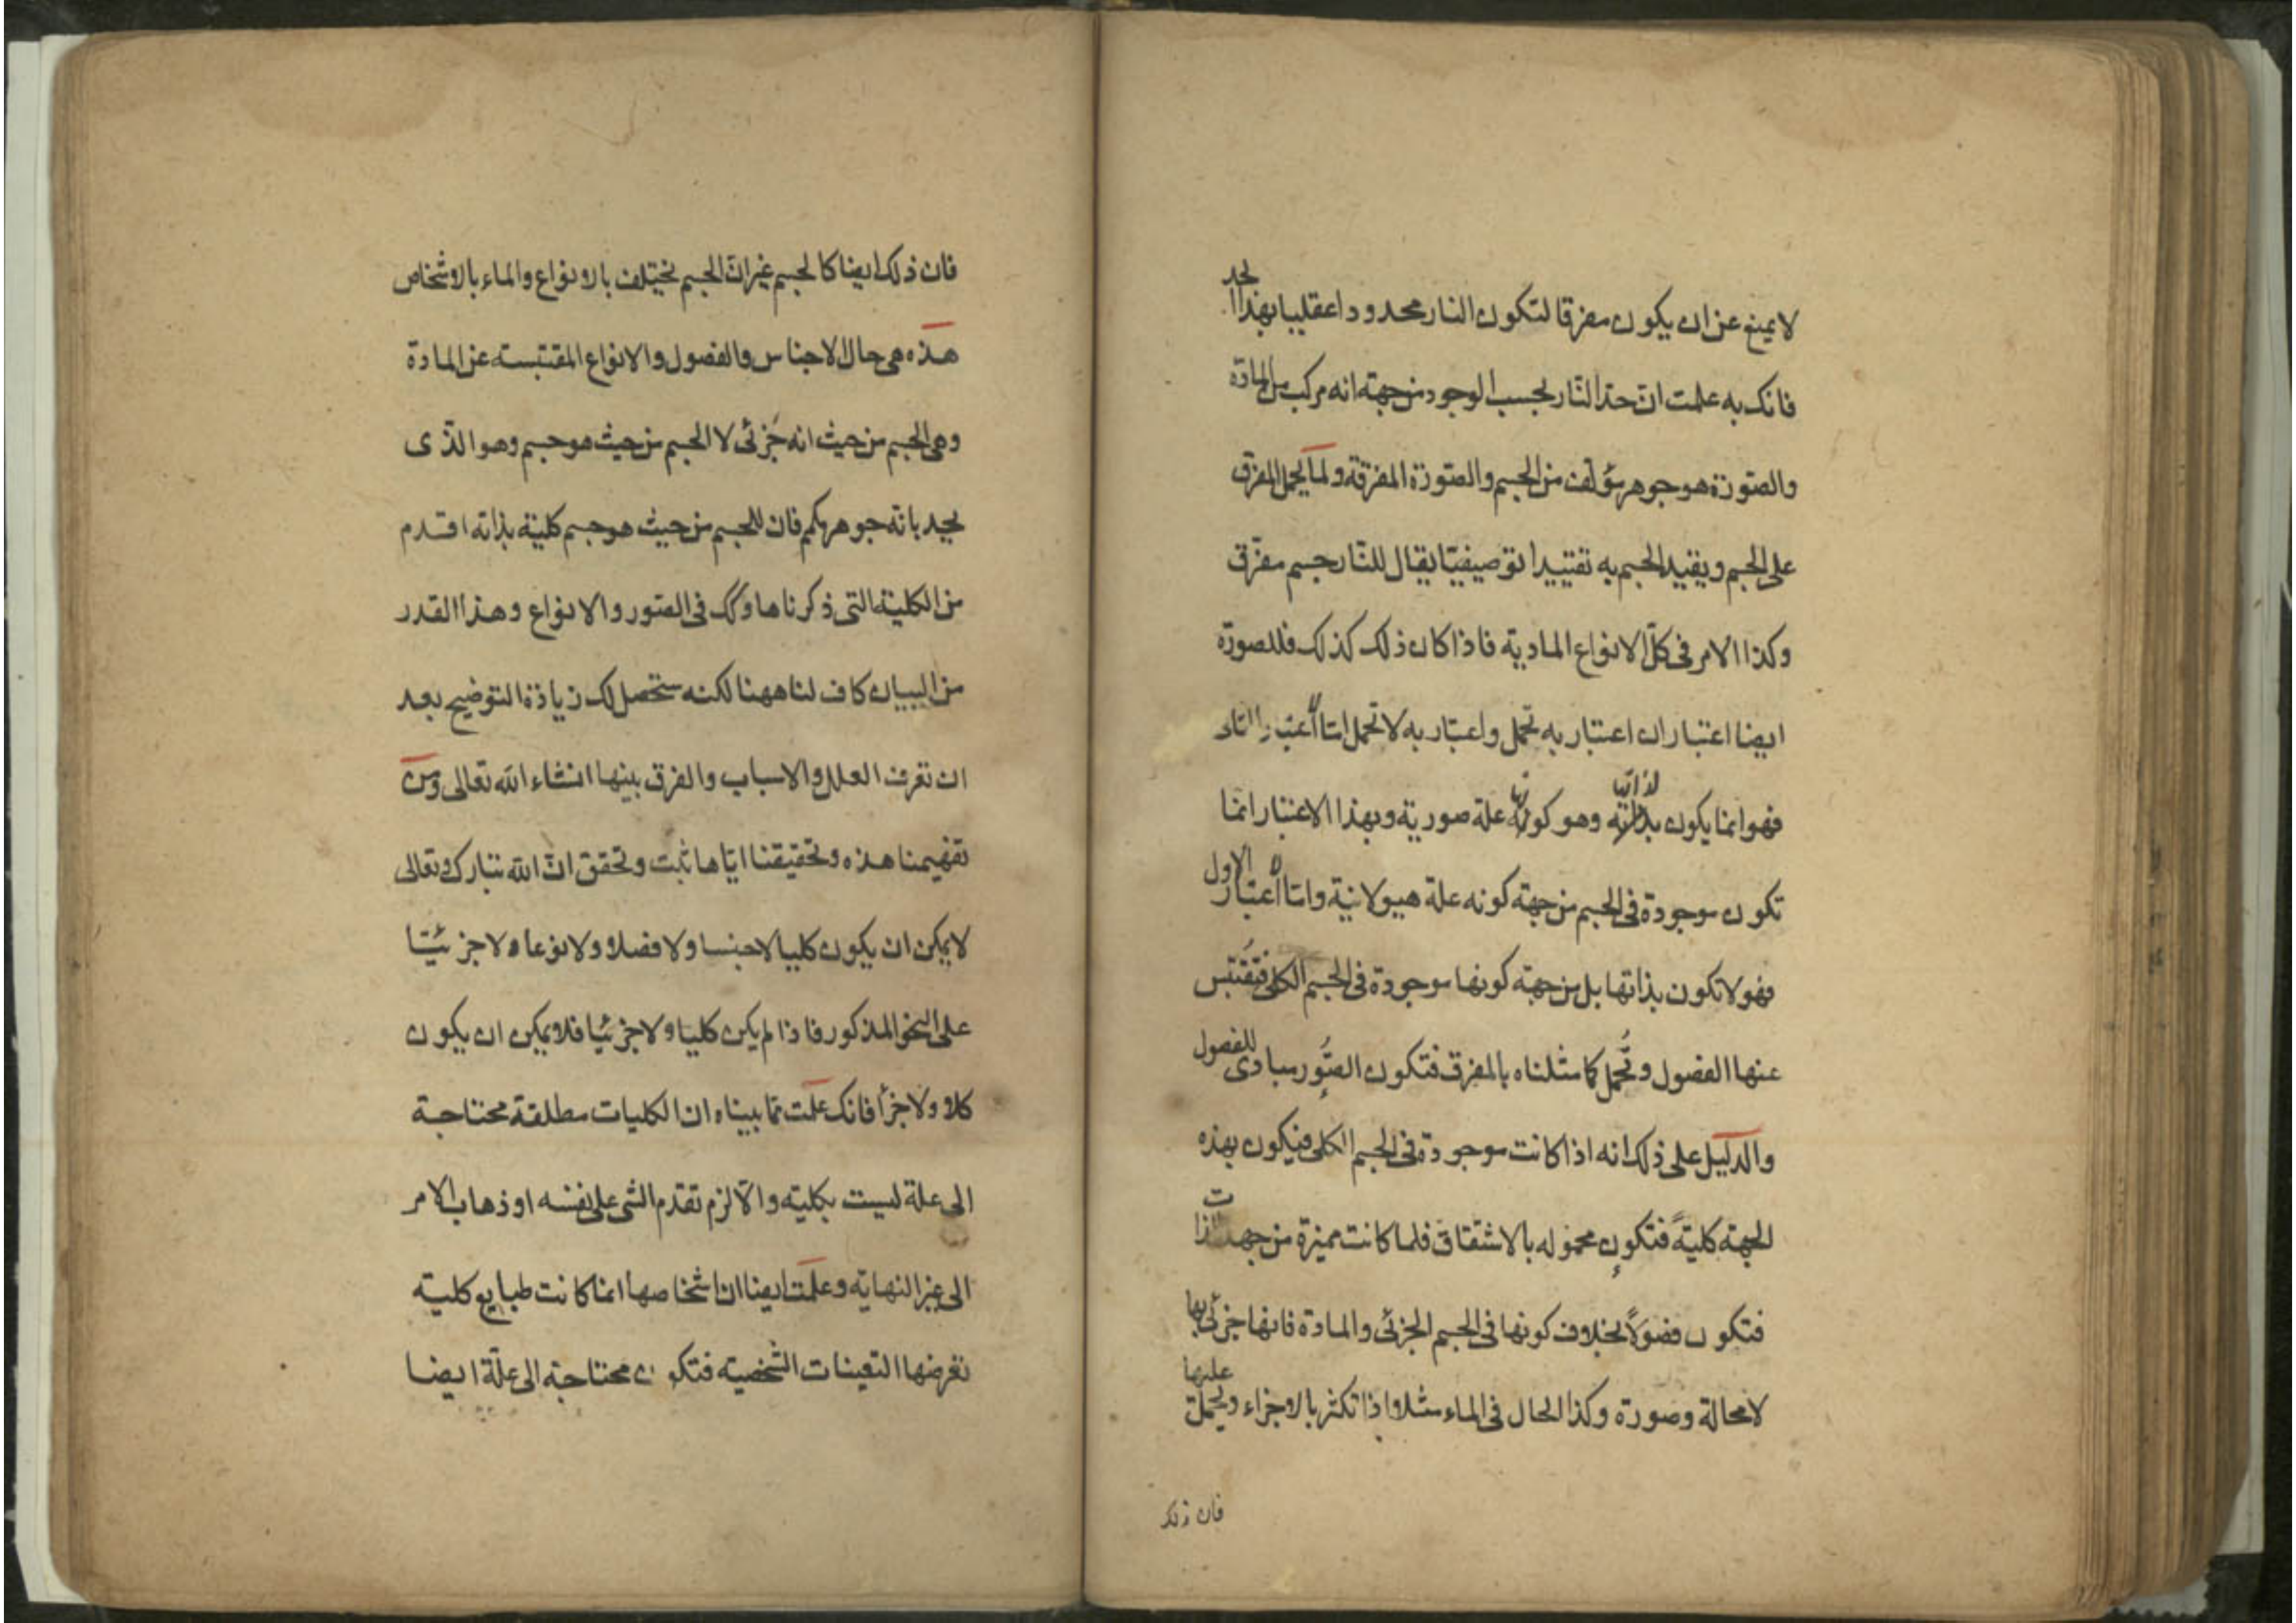 لا يمنع عن ان يكون مفرقا لتكون النار محدودا عقليا بهذا الحد
فانك به علمت ان حد النار بحسب الوجود من جهة انه مركب من المادة
والصورة هو جوهر مؤلف من الجسم والصورة المفرقة ولما يحمل المفرق
على الجسم ويقيد الجسم به تقييدا توصيفيا يقال للنار جسم مفرق
وكذا الامر فى كل الانواع المادية فاذا كان ذلك كذلك فللصورة
ايضا اعتباران اعتبار به تحمل واعتبار به لا تحمل اما اعتبار الثانى
فهو انما يكون لذاتها وهو كونها علة صورية وبهذا الاعتبار انما
تكون موجودة فى الجسم من جهة كونه علة هيولانية واما اعتبار الاول
فهو لا تكون بذاتها بل من جهة كونها موجودة فى الجسم الكلى فتقتبس
عنها الفصول وتحمل كما مثلناه بالمفرق فتكون الصور مبادى للفصول
والدليل على ذلك انه اذا كانت موجودة فى الجسم الكلى فيكون بهذه
الجهة كلية فتكون محمولة بالاشتقاق فلما كانت مميزة من جهة الذات
فتكون فصولا بخلاف كونها فى الجسم الجزئى والمادة فانها جزئى بها
لا محالة وصورة وكذا الحال فى الماء مثلا اذا تكثر بالاجزاء ويحمل عليها
فان ذلك
فان ذلك ايضا كالجسم غير ان الجسم يختلف بالانواع والماء بالاشخاص
هذه هى حال الاجناس والفصول والانواع المقتبسة عن المادة
وهى الجسم من حيث انه جزئى لا الجسم من حيث هو جسم وهو الذى
يحد بانه جوهر مكم فان للجسم من حيث هو جسم كلية بذاته اقدم
من الكلية التى ذكرناها وكك فى الصور والانواع وهذا القدر
من البيان كاف لنا ههنا لكنه ستحصل لك زيادة التوضيح بعد
ان تعرف العلل والاسباب والفرق بينها انشاء الله تعالى ومن
تفهيمنا هذه وتحقيقنا اياها ثبت وتحقق ان الله تبارك وتعالى
لا يمكن ان يكون كليا لا جنسا ولا فصلا ولا نوعا ولا جزئيا
على النحو المذكور فاذا لم يكن كليا ولا جزئيا فلا يمكن ان يكون
كلا ولا جزأ فانك علمت مما بيناه ان الكليات مطلقة محتاجة
الى علة ليست بكلية والا لزم تقدم الشى على نفسه او ذهاب الامر
الى غير النهاية وعلمت ايضا ان اشخاصها انما كانت طبايع كلية
تعرضها التعينات الشخصية فتكون محتاجة الى علة ايضا